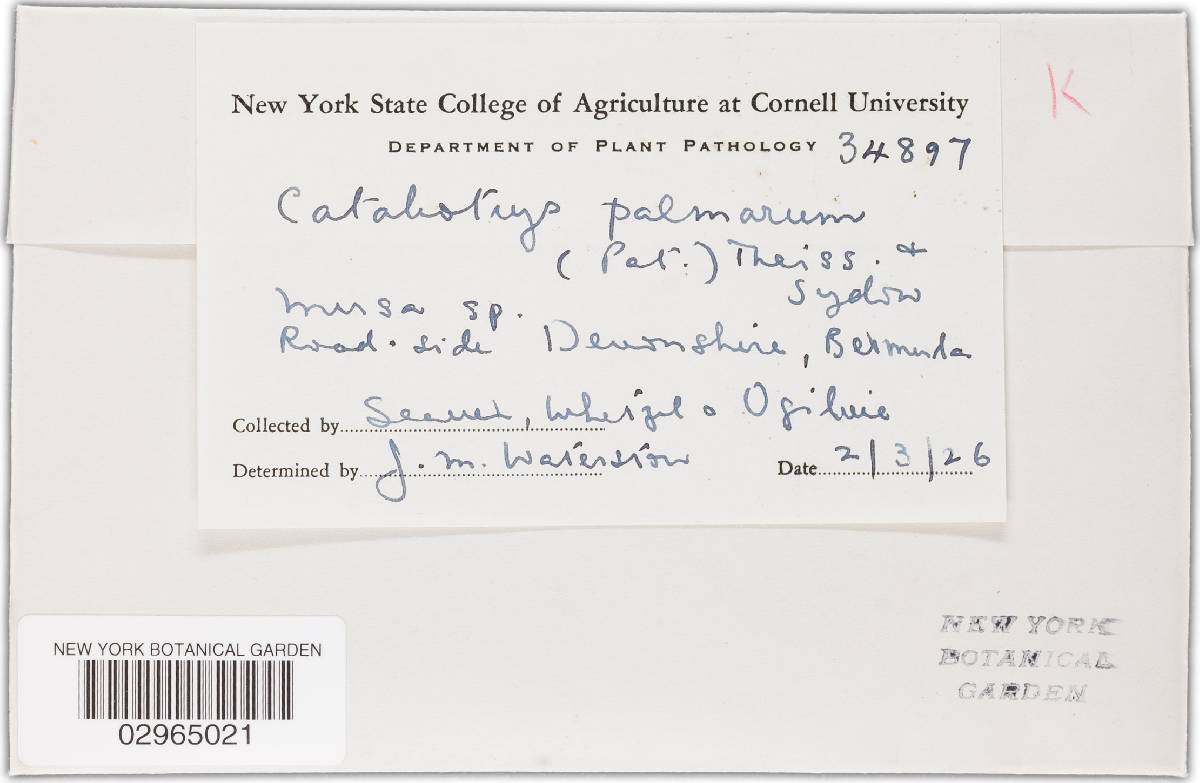 K
New York State College of Agriculture at Cornell University
DEPARTMENT OF PLANT PATHOLOGY 34897
Catabotrys palmarum
(Pat.) Theiss. +
Sydow
Musa sp.
Road-side Devonshire, Bermuda
Collected by Seaver, Whetzel & Ogilvie
Determined by J. M. Waterston Date 2/3/26
NEW YORK
BOTANICAL
GARDEN
NEW YORK BOTANICAL GARDEN
02965021